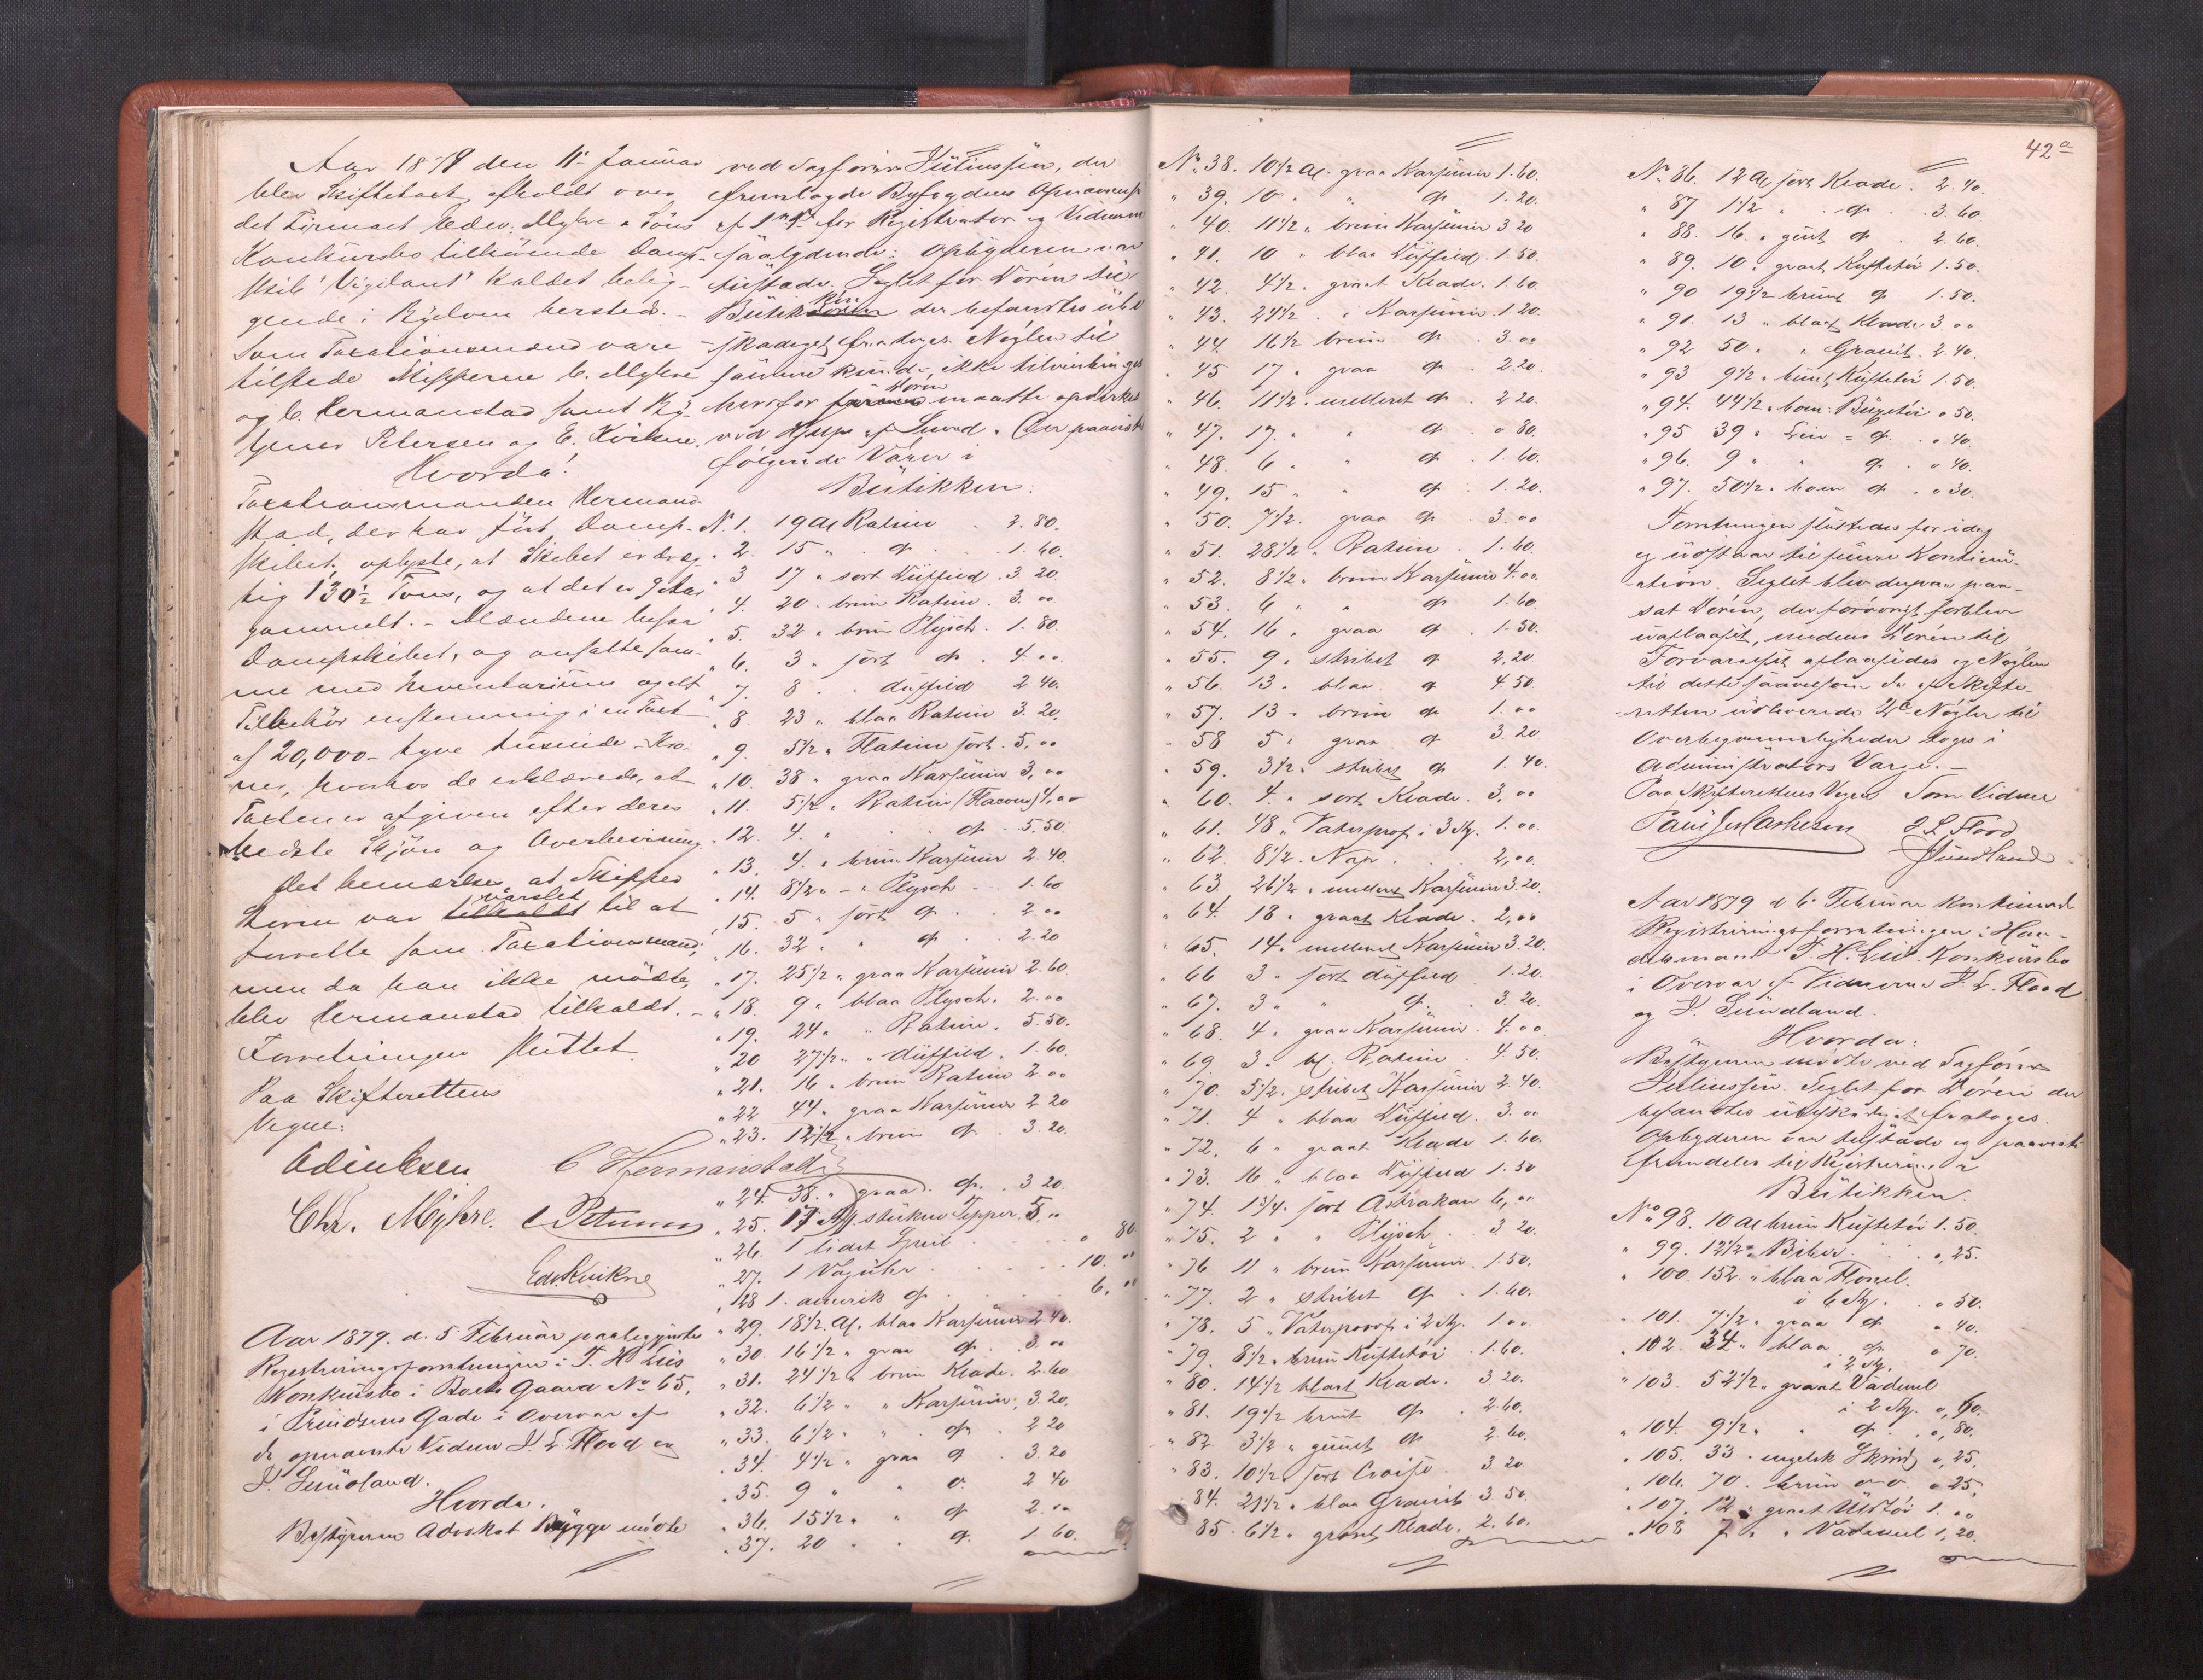 Aar 1879 den 11te Januar
blev Skifteret afholdt over
det Firmaet Edv. Myhre & Søns
Konkursbo tilhørende Damp-
skib "Vigilant" kaldet belig-
gende i herstedt. -
Som Taxationsmænd vare
tilstede Skipperne C. Myhre
og C. Hermanstad samt
Petersen og E. Kvikne.
Hvorda!
Taxationsmanden Hermand-
stad, der har ført Damp-
skibet, oplyste, at Skibet er dræg-
tig 130½ Tons, og at det er 9 Aar
gammelt. - Mændene besaa
Dampskibet, og ansatte sam-
me med Inventarium og alt
Tilbehør enstemmig i en Taxt
af 20,000 - tyve tusinde - Kro-
ner, hvorhos de erklærede, at
Taxten er afgiven efter deres
bedste Skjøn og Overbevisning.
Det bemærkes, at Skipper
varslet
var tilkaldt til at
forrette som Taxationsmand,
men da han ikke mødte,
blev Hermanstad tilkaldt. -
Forretningen sluttet.
Paa Skifterettens
Vegne:
C Hermanstad
Chr. Myhre. E Petersen
Edv. Kvikne
Aar 1879. d. 5 Februar paabegyndtes
Registreringsforretningen i T. H. Lies
Konkursbo i Boets Gaard No 65,
i Prindsens Gade i Overvær af
de opnævnte Vidner J. L. Flood og
J. Sundland.
Hvorda.
Bestyreren Advokat Bygge mødte
ved Sagfører Juliussen, der
fremlagde Byfogdens Opnævnelse
af for Registrator og Vidnerne
saalydende: Opbyderen var
tilstede. Seglet for Døren til
ken
Butikdøren der befandtes ube-
skadiget fratoges. Nøglen til
samme kunde ikke tilveiebringes
Døren
hvorfor maatte opdirkes
ved Hjælp af Smed. Der paavistes
følgende Varer i
Butikken:
No 1. 19 Al Ratine . 2.80.
" 2. 15 " do . 1.60.
" 3 17 " sort Düffeld . 3 20.
" 4. 20 " brun Ratine . 3. "
" 5. 32 " brun Plysch . 1.80.
" 6. 3 " sort do . 4 "
" 7. 8 " " düffeld 2 40.
" 8 23 " blaa Ratine 3. 20.
" 9. 5½ " Flatine sort . 5, "
" 10. 38 " graa Karsimir 3, "
" 11. 5¼ " Ratine (Flacone) 4, "
" 12. 4. " do . 5.50.
" 13. 4. " brun Karsimir 2.40.
" 14. 8½ " - " Plysch . 1.60
" 15. 5 " sort do . 2. "
" 16. 32 " " do . 2.20
" 17. 25½ " graa Karsimir 2.60.
" 18. 9 " blaa Plysch . 2. "
" 19. 24 " " Ratine . 5.50.
" 20 27½ " " düffeld . 1.60.
" 21. 16 " brun Ratine 2. "
" 22 44 " graa Karsimir 2 20
" 23. 12½ " brun do . 3.20.
" 24. 38. " graa do . 3 20.
" 25. 17 Stk. stukne Tepper . 5, "
" 26. 1 lidet Speil . " 80.
" 27. 1 Væguhr . 10. "
" 28 1. amerik do . 6, "
" 29. 18½ Al. blaa Karsimir 2.40.
" 30. 16½ " graa do . 3. "
" 31. 24½ " brun Klæde . 2.60
" 32. 6½ " " Karsimir, 3.20.
" 33. 6½ " " do . 2 20
" 34. 4½ " graa do . 3.20
" 35. 9 " " o. 2 40
" 36. 15½ " " do . 2. "
" 37. 20 " " do . 1.60.
42a
No. 38. 10½ Al. graa Karsimir 1.60.
" 39. 10 " " do 1.20.
" 40. 11½ " brun Karsimir 3 20
" 41. 10 " blaa Düffeld . 1.50.
" 42. 4½ " graat Klæde . 1.60.
" 43. 24½ " i Karsimir . 1 20.
" 44. 16½ brun do . 3. "
" 45 17 " graa do . 2.20.
" 46. 11½ " melleret do . 2 20.
" 47. 17. " " do . " 80.
" 48. 6 " " do . 1.60.
" 49. 15 " " do . 1.20.
" 50. 7½ " graa do . 3. "
" 51. 28½ " Ratine . 1.60.
" 52. 8½ " brun Karsimir 4. "
" 53. 6 " " do 1.60.
" 54. 16 " graa do . 1.50.
" 55. 9. " stribet do 2,20
" 56. 13. " blaa do 4.50.
" 57. 13 " brun do 1. "
" 58 5 " graa do 3.20
" 59. 3½ " stribet do 1.40.
" 60. 4. " sort Klæde . 3, "
" 61. 48 " Vaterprof i 3 Stk. 1. "
" 62. 8½ . Nop . 2, "
" 63. 26½ " melleret Karsimir 3.20.
" 64. 18 " graat Klæde . 2, "
" 65. 14 " melleret Karsimir 3.20.
" 66 3 " sort düffeld 1.20.
" 67. 3 " " do . 3. 20.
" 68. 4 " graa Karsimir . 4. "
" 69. 3 " bl. Ratine . 4.50.
" 70. 5½ " stribet Karsimir 2 40.
" 71. 4 " blaa Düffeld . 3. "
" 72. 6 " graat Klæde 1.60.
" 73. 16 " blaa Düffeld 1.50
" 74. 1¾ . sort Astrakan 6, "
" 75. 2 " " Plysch . 3 20.
" 76 11 " brun Karsimir 1.50.
" 77. 2 " stribet do . 1.60.
" 78. 5 " Vaterprof i 2 Stk. 1. "
" 79. 8½ " brun Kuffetöi . 1.60.
" 80. 14½ blaat Klæde . 3 20.
" 81. 19½ brunt do . 2.60.
" 82 3½ " grønt do 2 60.
" 83. 10½ " sort Croise . 3 20
" 84. 21½ " blaa Granit 3 50.
" 85. 6½ " grønt Klæde . 2.60.
No. 86. 12 Al sort Klæde . 2.40.
" 87 1½ " do . 3.60.
" 88. 16. " do . 2.60.
" 89. 10 " graat Kuffetöi 1.50.
" 90 19½ brunt do 1.50.
" 91. 13 " blaat Klæde 3. "
" 92 50 " " Granit . 2.40.
" 93 9½ " brunt Kuffetöi 1.50.
" 94. 44½ " bom. Buxetöi " 50.
" 95 39 " Lin = do . " 40
" 96. 9 " " do . " 40.
" 97. 50½ " bom do . " 30.
Forretningen sluttedes for idag
og udstaar til senere Kontinu-
-ation. Seglet blev derpaa paa-
sat Døren, der forøvrigt forblev
uaflaaset, medens Døren til
Forværelset aflaasedes og Nøglen
til dette saavelsom de af Skifte-
-retten udleverede 2de Nøgler til
Overbekvemmeligheder toges i
Administrators Værge. -
Paa Skifterettens Vegne Som Vidner
J L Flood
J Sundland
Aar 1879 d 6. Februar kontinuert
Registreringsforretningen i Han-
delsmand T. H. Lies Konkursbo
i Overvær af Vidnerne J. L. Flood
og J. Sundland.
Hvorda:
Bestyreren mødte ved Sagfører
Juliussen. Seglet for Døren der
befandtes ubeskadiget fratoges.
Opbyderen var tilstede og paaviste
fremdeles til Registrering i
Butikken.
No 98. 10 Al brun Kuffetöi 1.50.
" 99. 12½ " Biber . " ,25.
" 100. 152 " blaa Flonel.
i 6 Stk. . " 50.
" 101. 7½ " graa do " 40.
" 102. 34 " blaa do " 70.
i 2 Stk.
" 103. 52½ " graat Vadmel
i 2 Stk. ", 60.
" 104. 9½ " " do . ", 80.
" 105. 33 " engelsk Skind ", 25.
" 106. 70 . brun o o " 25,
" 107. 12 " graat Uldtöi 1. "
" 108 7 " " Vadmel 1, 20.